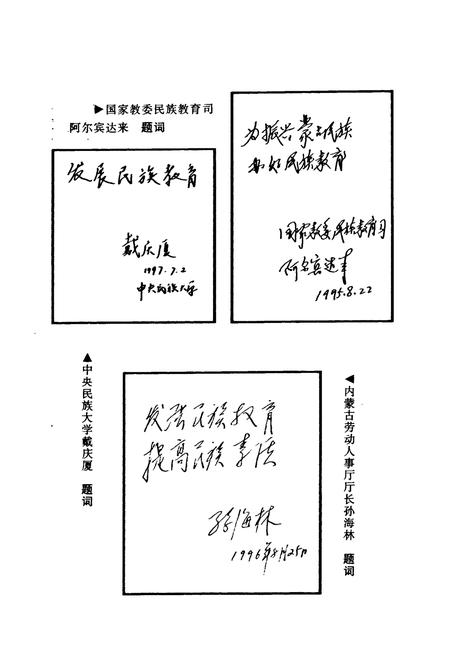 ▶国家教委民族教育司
阿尔宾达来 题词
发展民族教育
戴庆厦
1997.7.2
中央民族大学
为振兴蒙古民族
办好民族教育
国家教委民族教育司
阿尔宾达来
1995.8.22
▲中央民族大学戴庆厦 题词
发展民族教育
提高民族素质
孙海林
1996年8月25日
◀内蒙古劳动人事厅厅长孙海林 题词